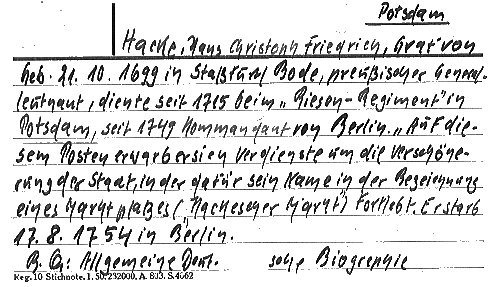 Potsdam
Hacke, Hans Christoph Friedrich, Graf von
Geb. 21. 10. 1699 in Staßfurt Bode, preußischer General-
leutnant, diente seit 1715 beim „Riesen-Regiment" in
Potsdam, seit 1749 Kommandant von Berlin. „Auf die-
sem Posten erwarb er sich Verdienste um die Verschöne-
rung der Stadt, in der dafür sein Name in der Bezeichnung
eines Marktplatzes („Hackescher Markt) fortlebt. Er starb
17. 8. 1754 in Berlin.
B. Qu: Allgemeine Deut. sche Biographie
Reg. 10 Stichnote. I. 50. 232000. A. 803. S. 4062